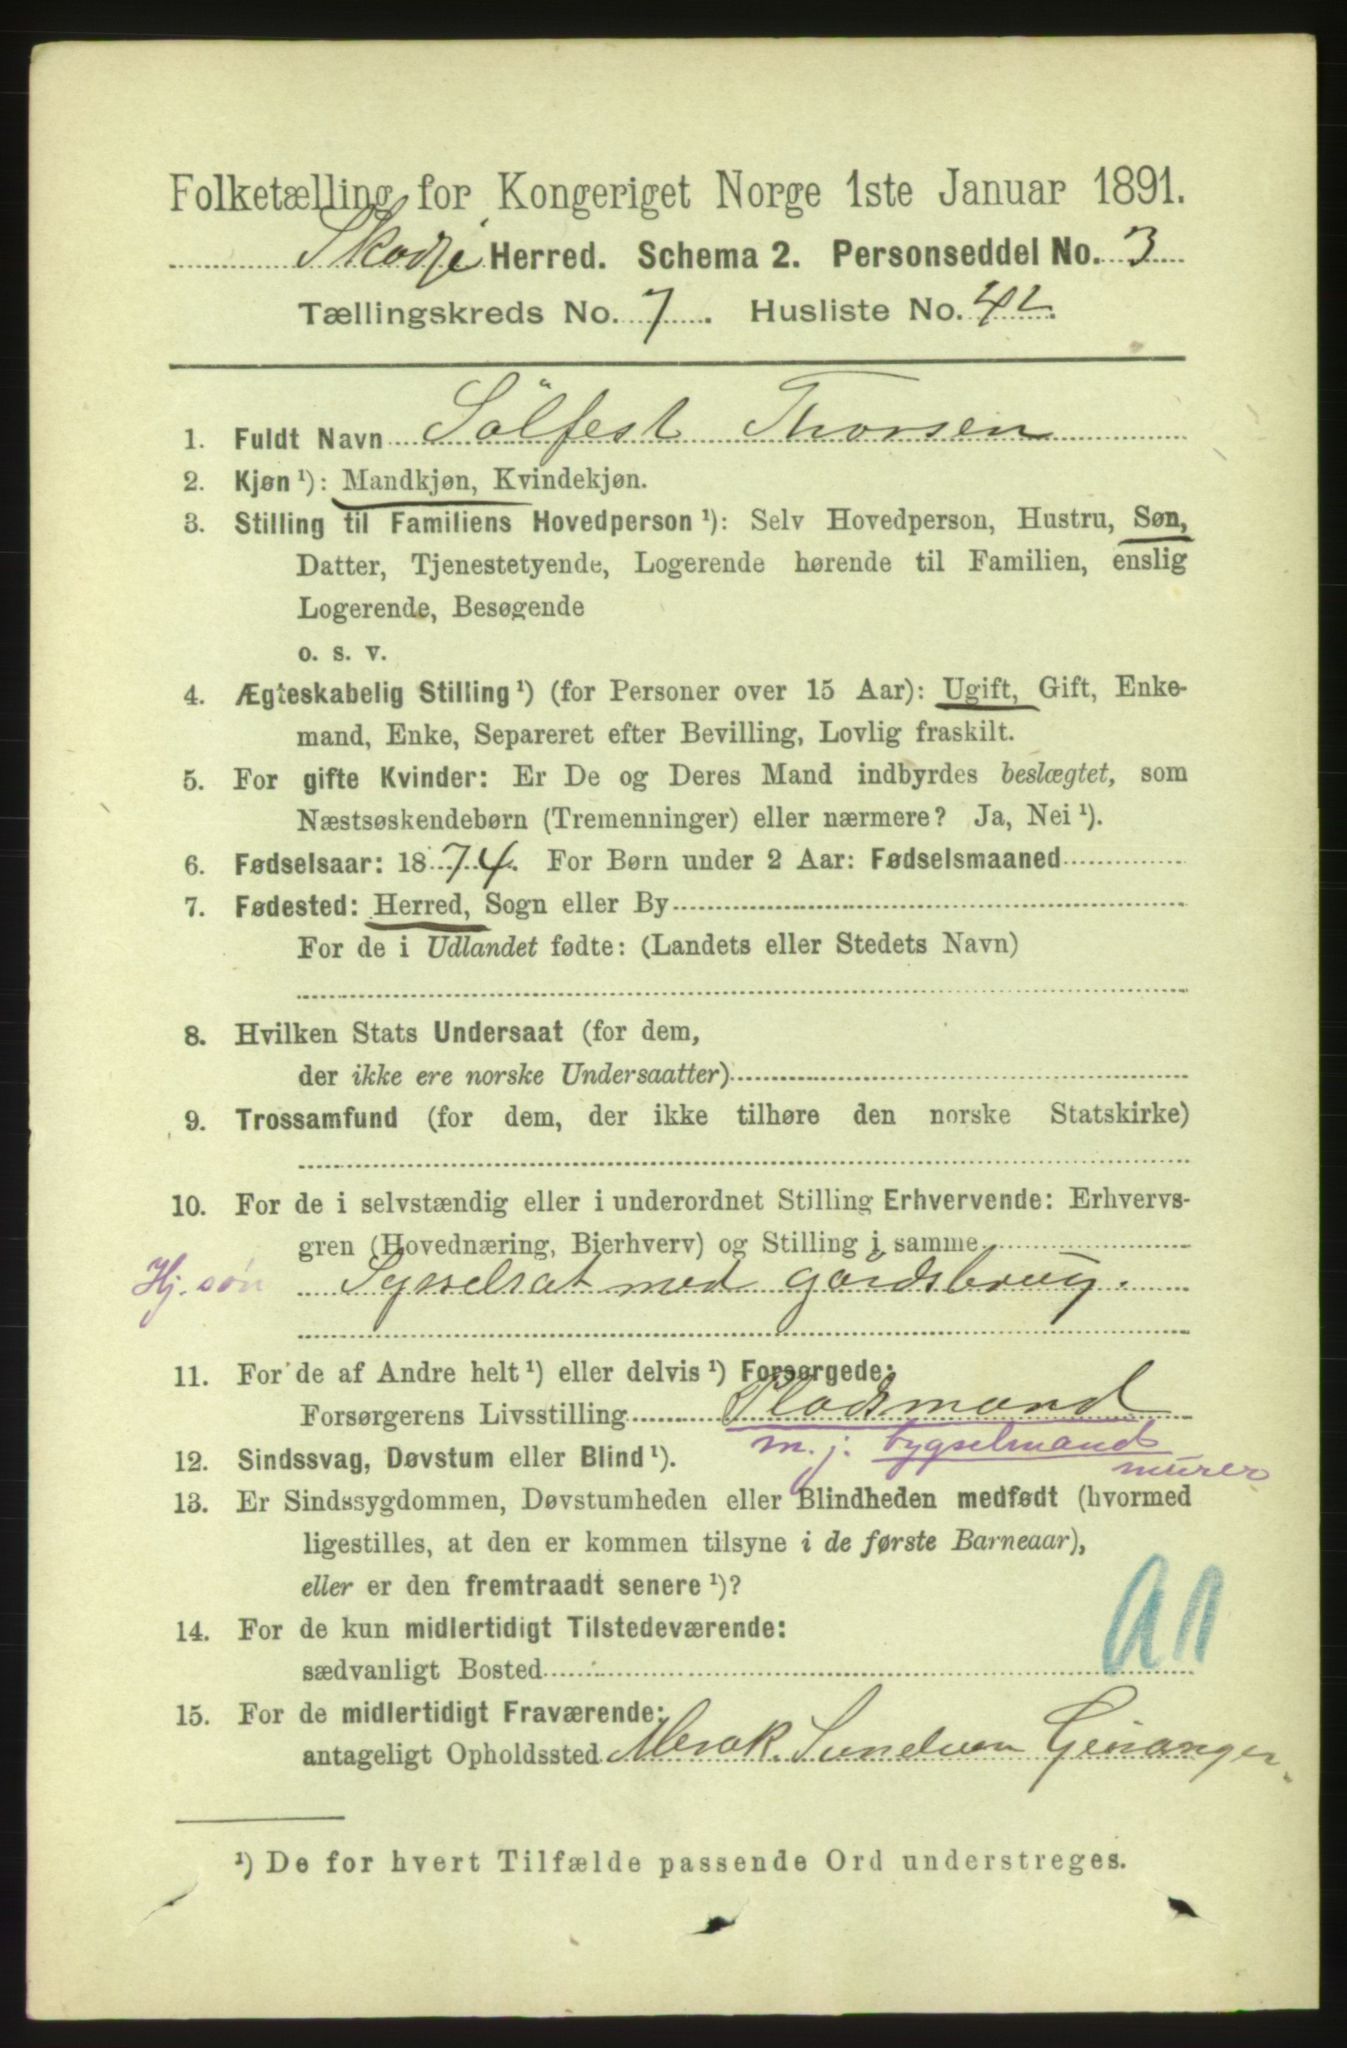 Folketælling for Kongeriget Norge 1ste Januar 1891.
Skodje Herred. Schema 2. Personseddel No. 3
Tællingskreds No. 7. Husliste No. 42.
1. Fuldt Navn Sölfest Thorsen
2. Kjøn ¹): Mandkjøn, Kvindekjøn.
3. Stilling til Familiens Hovedperson ¹): Selv Hovedperson, Hustru, Søn,
Datter, Tjenestetyende, Logerende hørende til Familien, enslig
Logerende, Besøgende
o. s. v.
4. Ægteskabelig Stilling ¹) (for Personer over 15 Aar): Ugift, Gift, Enke-
mand, Enke, Separeret efter Bevilling, Lovlig fraskilt.
5. For gifte Kvinder: Er De og Deres Mand indbyrdes beslægtet, som
Næstsøskendebørn (Tremenninger) eller nærmere? Ja, Nei ¹).
6. Fødselsaar: 1874. For Børn under 2 Aar: Fødselsmaaned
7. Fødested: Herred, Sogn eller By
For de i Udlandet fødte: (Landets eller Stedets Navn)
8. Hvilken Stats Undersaat (for dem,
der ikke ere norske Undersaatter)
9. Trossamfund (for dem, der ikke tilhøre den norske Statskirke)
10. For de i selvstændig eller i underordnet Stilling Erhvervende: Erhvervs-
gren (Hovednæring, Bierhverv) og Stilling i samme
Hj. søn Sysselsat med gårdsbrug.
11. For de af Andre helt ¹) eller delvis ¹) Forsørgede:
Forsørgerens Livsstilling Pladsmand
m. j. bygselmand
murer
12. Sindssvag, Døvstum eller Blind ¹).
13. Er Sindssygdommen, Døvstumheden eller Blindheden medfødt (hvormed
ligestilles, at den er kommen tilsyne i de første Barneaar),
eller er den fremtraadt senere ¹)?
14. For de kun midlertidigt Tilstedeværende:
sædvanligt Bosted
15. For de midlertidigt Fraværende:
antageligt Opholdssted Merok. Sunelven Geiranger.
¹) De for hvert Tilfælde passende Ord understreges.